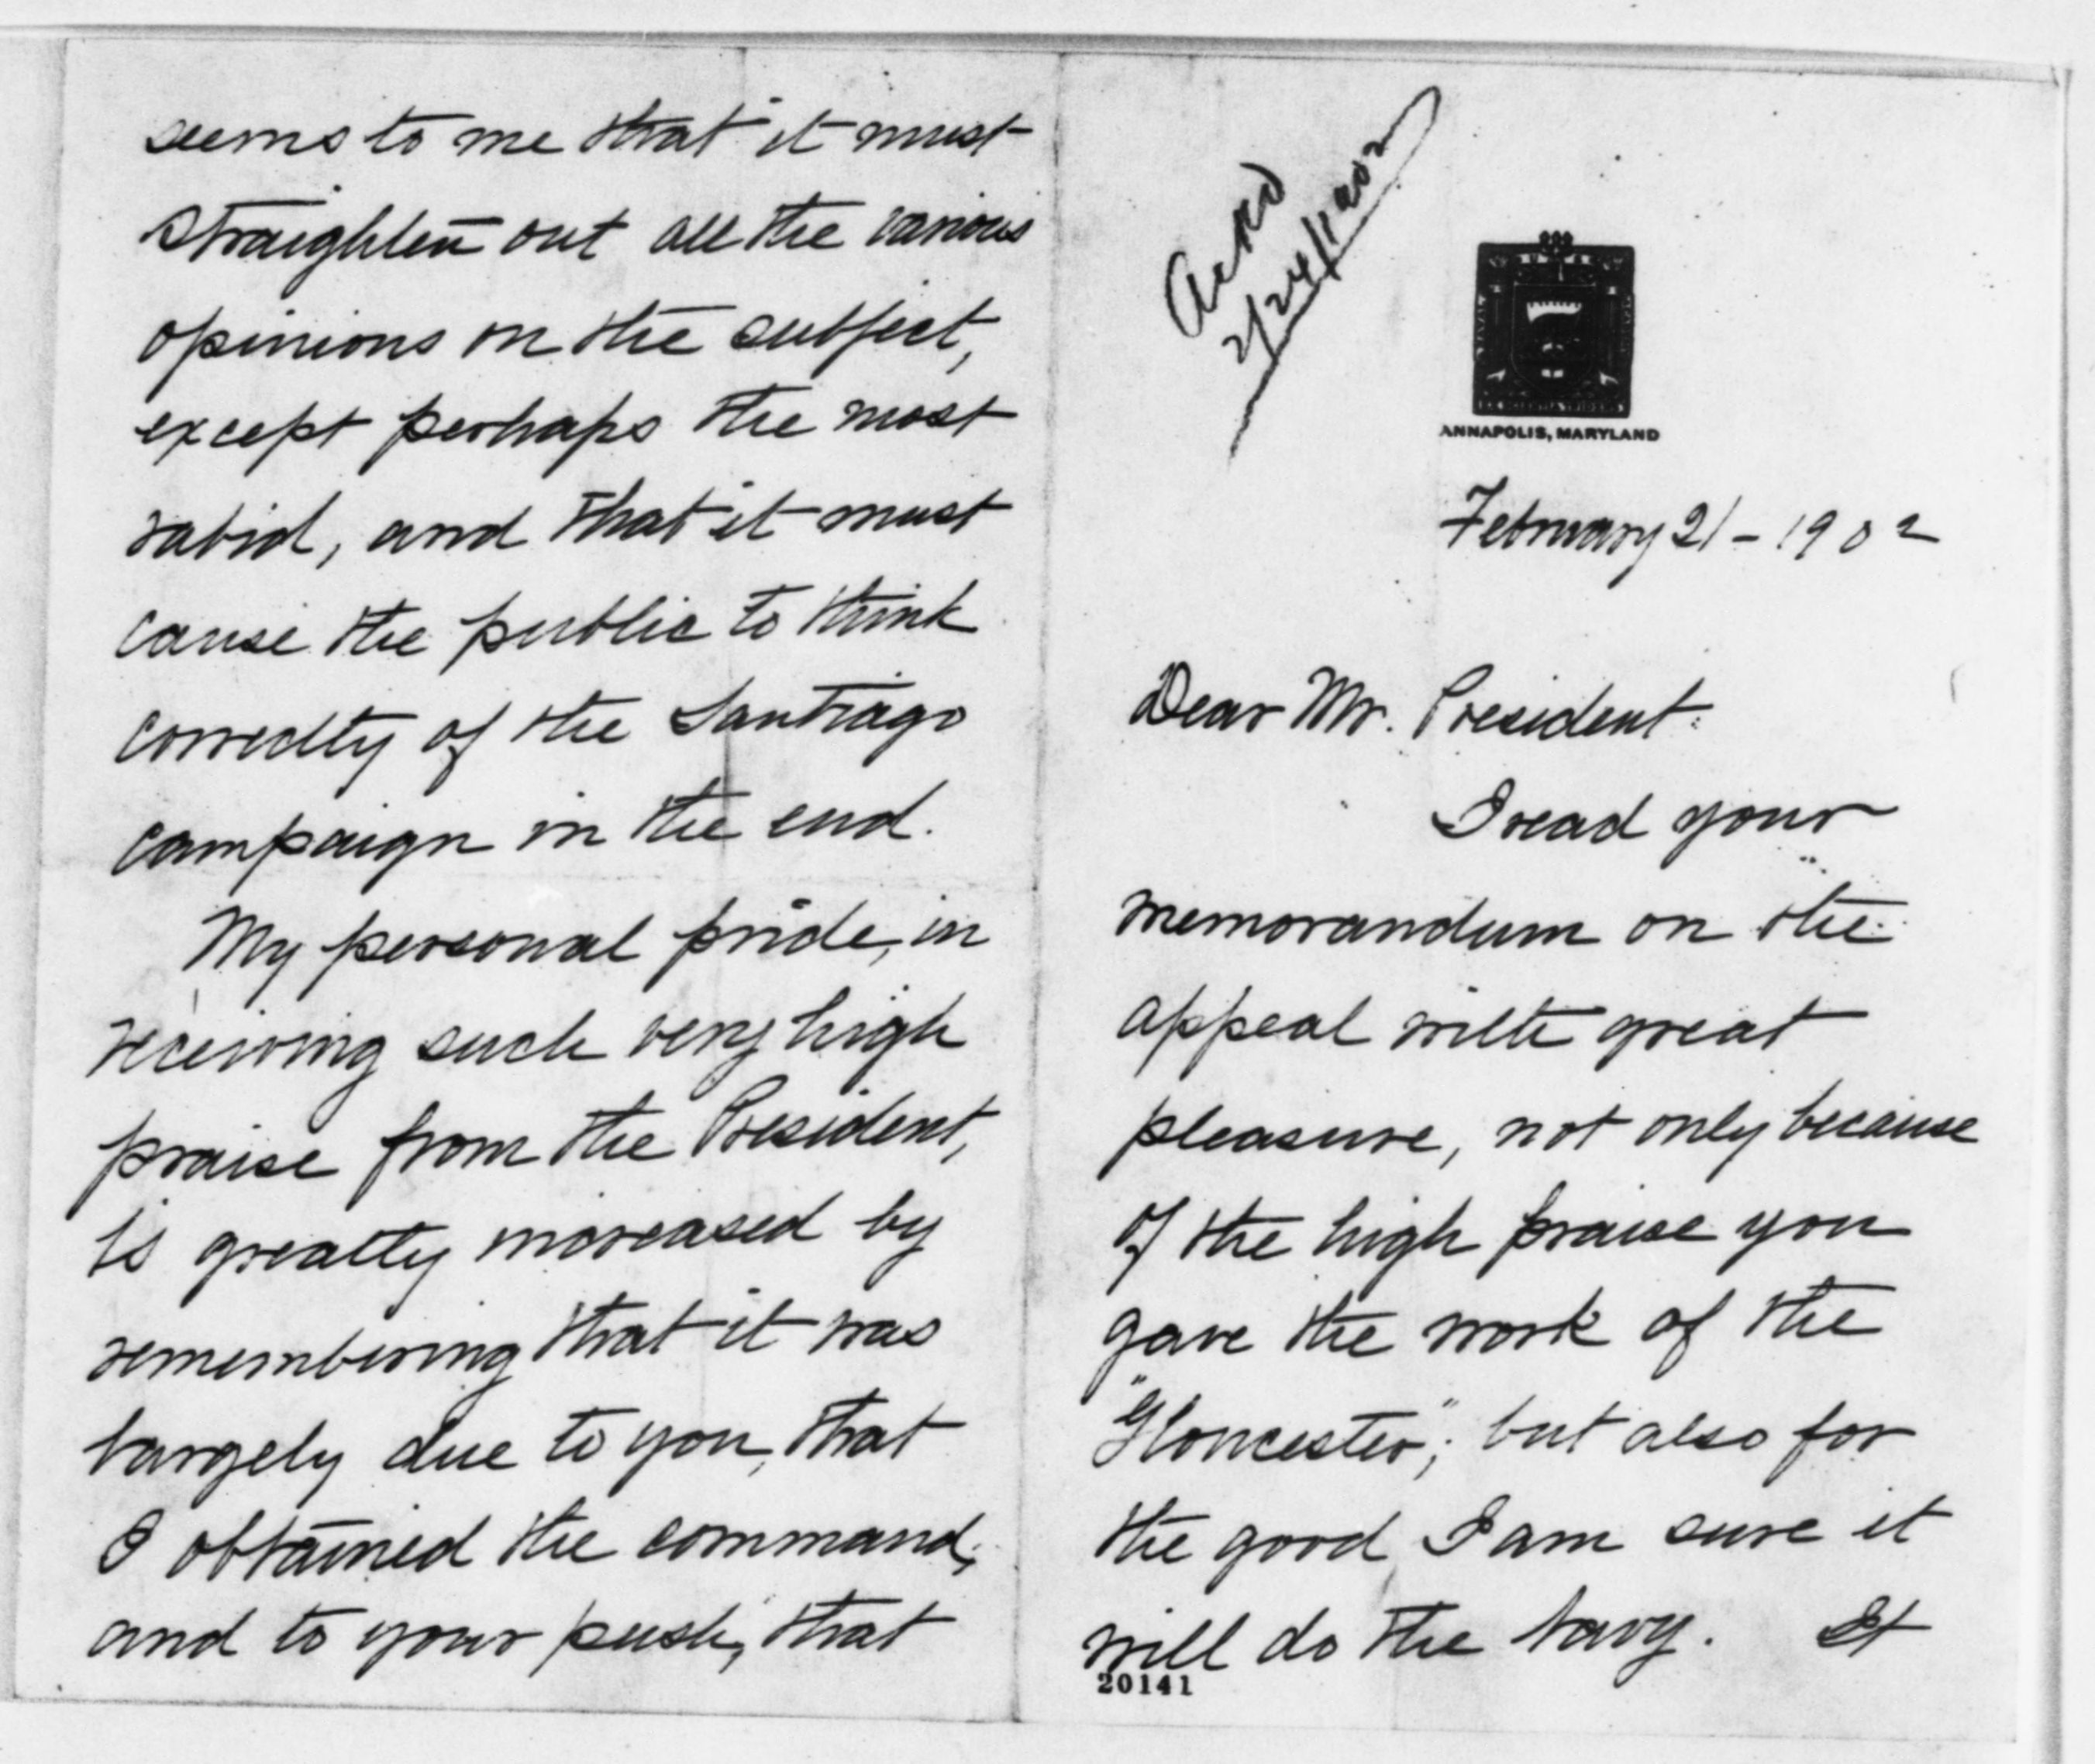 Ackd
2/24/1902
EX SCIENTIA TRIDENS
ANNAPOLIS, MARYLAND
February 21 - 1902
Dear Mr. President:
I read your
memorandum on the
appeal with great
pleasure, not only because
of the high praise you
gave the work of the
"Gloucester"; but also for
the good, I am sure it
will do the Navy. It
20141
seems to me that it must
straighten out all the various
opinions on the subject,
except perhaps the most
rabid, and that it must
cause the public to think
correctly of the Santiago
campaign in the end.
My personal pride, in
receiving such very high
praise from the President,
is greatly increased by
remembering that it was
largely due to you, that
I obtained the command,
and to your push, that